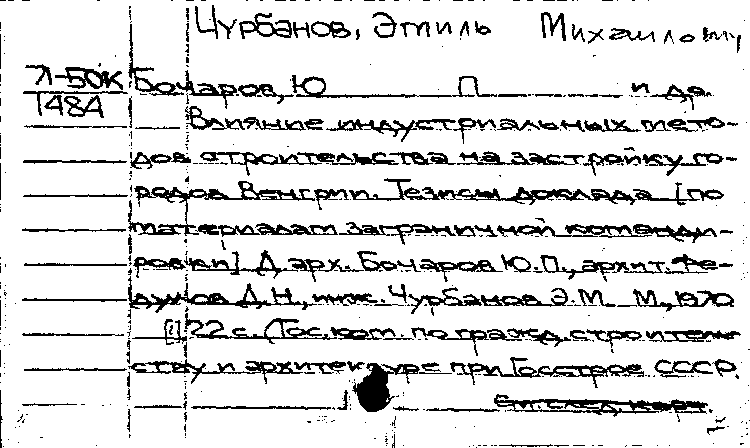 Чурбанов, Эмиль Михайлович
Л-50К Бочаров, Ю П и др.
1484
Влияние индустриальных мето-
дов строительства на застройку го-
родов Венгрии. Тезисы доклада [по
материалам заграничной команди-
ровки] Д. арх. Бочаров Ю.П., архит. Фе-
дулов Д.Н., инж. Чурбанов Э.М. М., 1970
[1] 22 с. (Гос. ком. по гражд. строитель-
ству и архитектуре при Госстрое СССР.
См. след. карт.